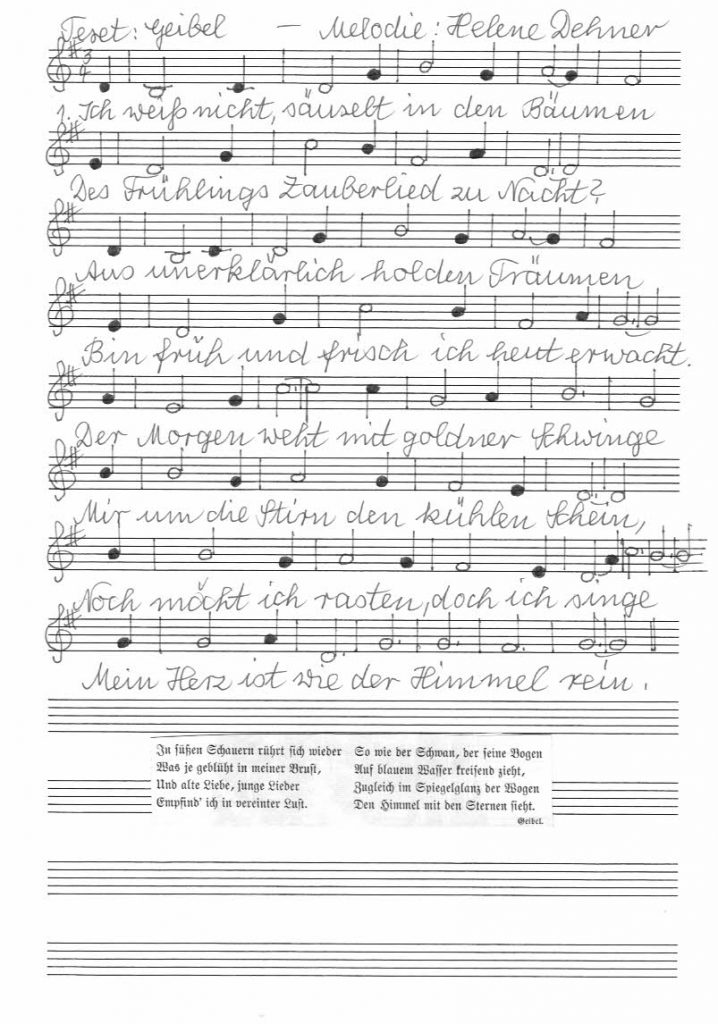 Text: Geibel – Melodie: Helene Dehner
3
4
1. Ich weiß nicht, säuselt in den Bäumen
Des Frühlings Zauberlied zu Nacht?
Aus unerklärlich holden Träumen
Bin früh und frisch ich heut erwacht.
Der Morgen weht mit goldner Schwinge
Mir um die Stirn den kühlen Schein,
Noch möcht ich rasten, doch ich singe
Mein Herz ist wie der Himmel rein.
In süßen Schauern rührt sich wieder
Was je geblüht in meiner Brust,
Und alte Liebe, junge Lieder
Empfind' ich in vereinter Lust.
So wie der Schwan, der seine Bogen
Auf blauem Wasser kreisend zieht,
Zugleich im Spiegelglanz der Wogen
Den Himmel mit den Sternen sieht.
Geibel.